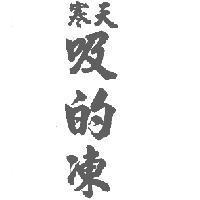 寒天
吸的凍